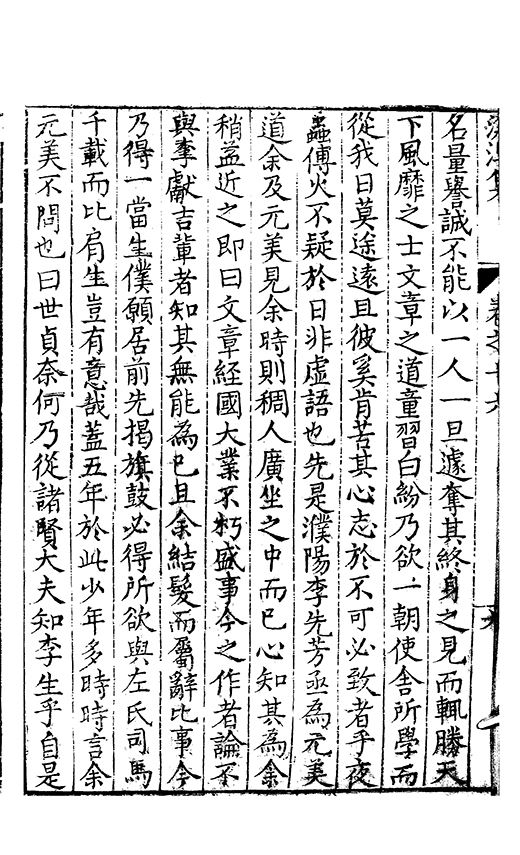 滄溟集 卷之十六
名量譽誠不能以一人一旦遽奪其終身之見而輒勝天
下風靡之士文章之道童習白紛乃欲一朝使舍所學而
從我日莫途遠且彼奚肯苦其心志於不可必致者乎夜
蟲傅火不疑於日非虛語也先是濮陽李先芳亟為元美
道余及元美見余時則稠人廣坐之中而已心知其為余
稍益近之即曰文章經國大業不朽盛事今之作者論不
與李獻吉輩者知其無能為已且余結髮而屬辭比事今
乃得一當生僕願居前先揭旗鼓必得所欲與左氏司馬
千載而比肩生豈有意哉蓋五年於此少年多時時言余
元美不問也曰世貞奈何乃從諸賢大夫知李生乎自是